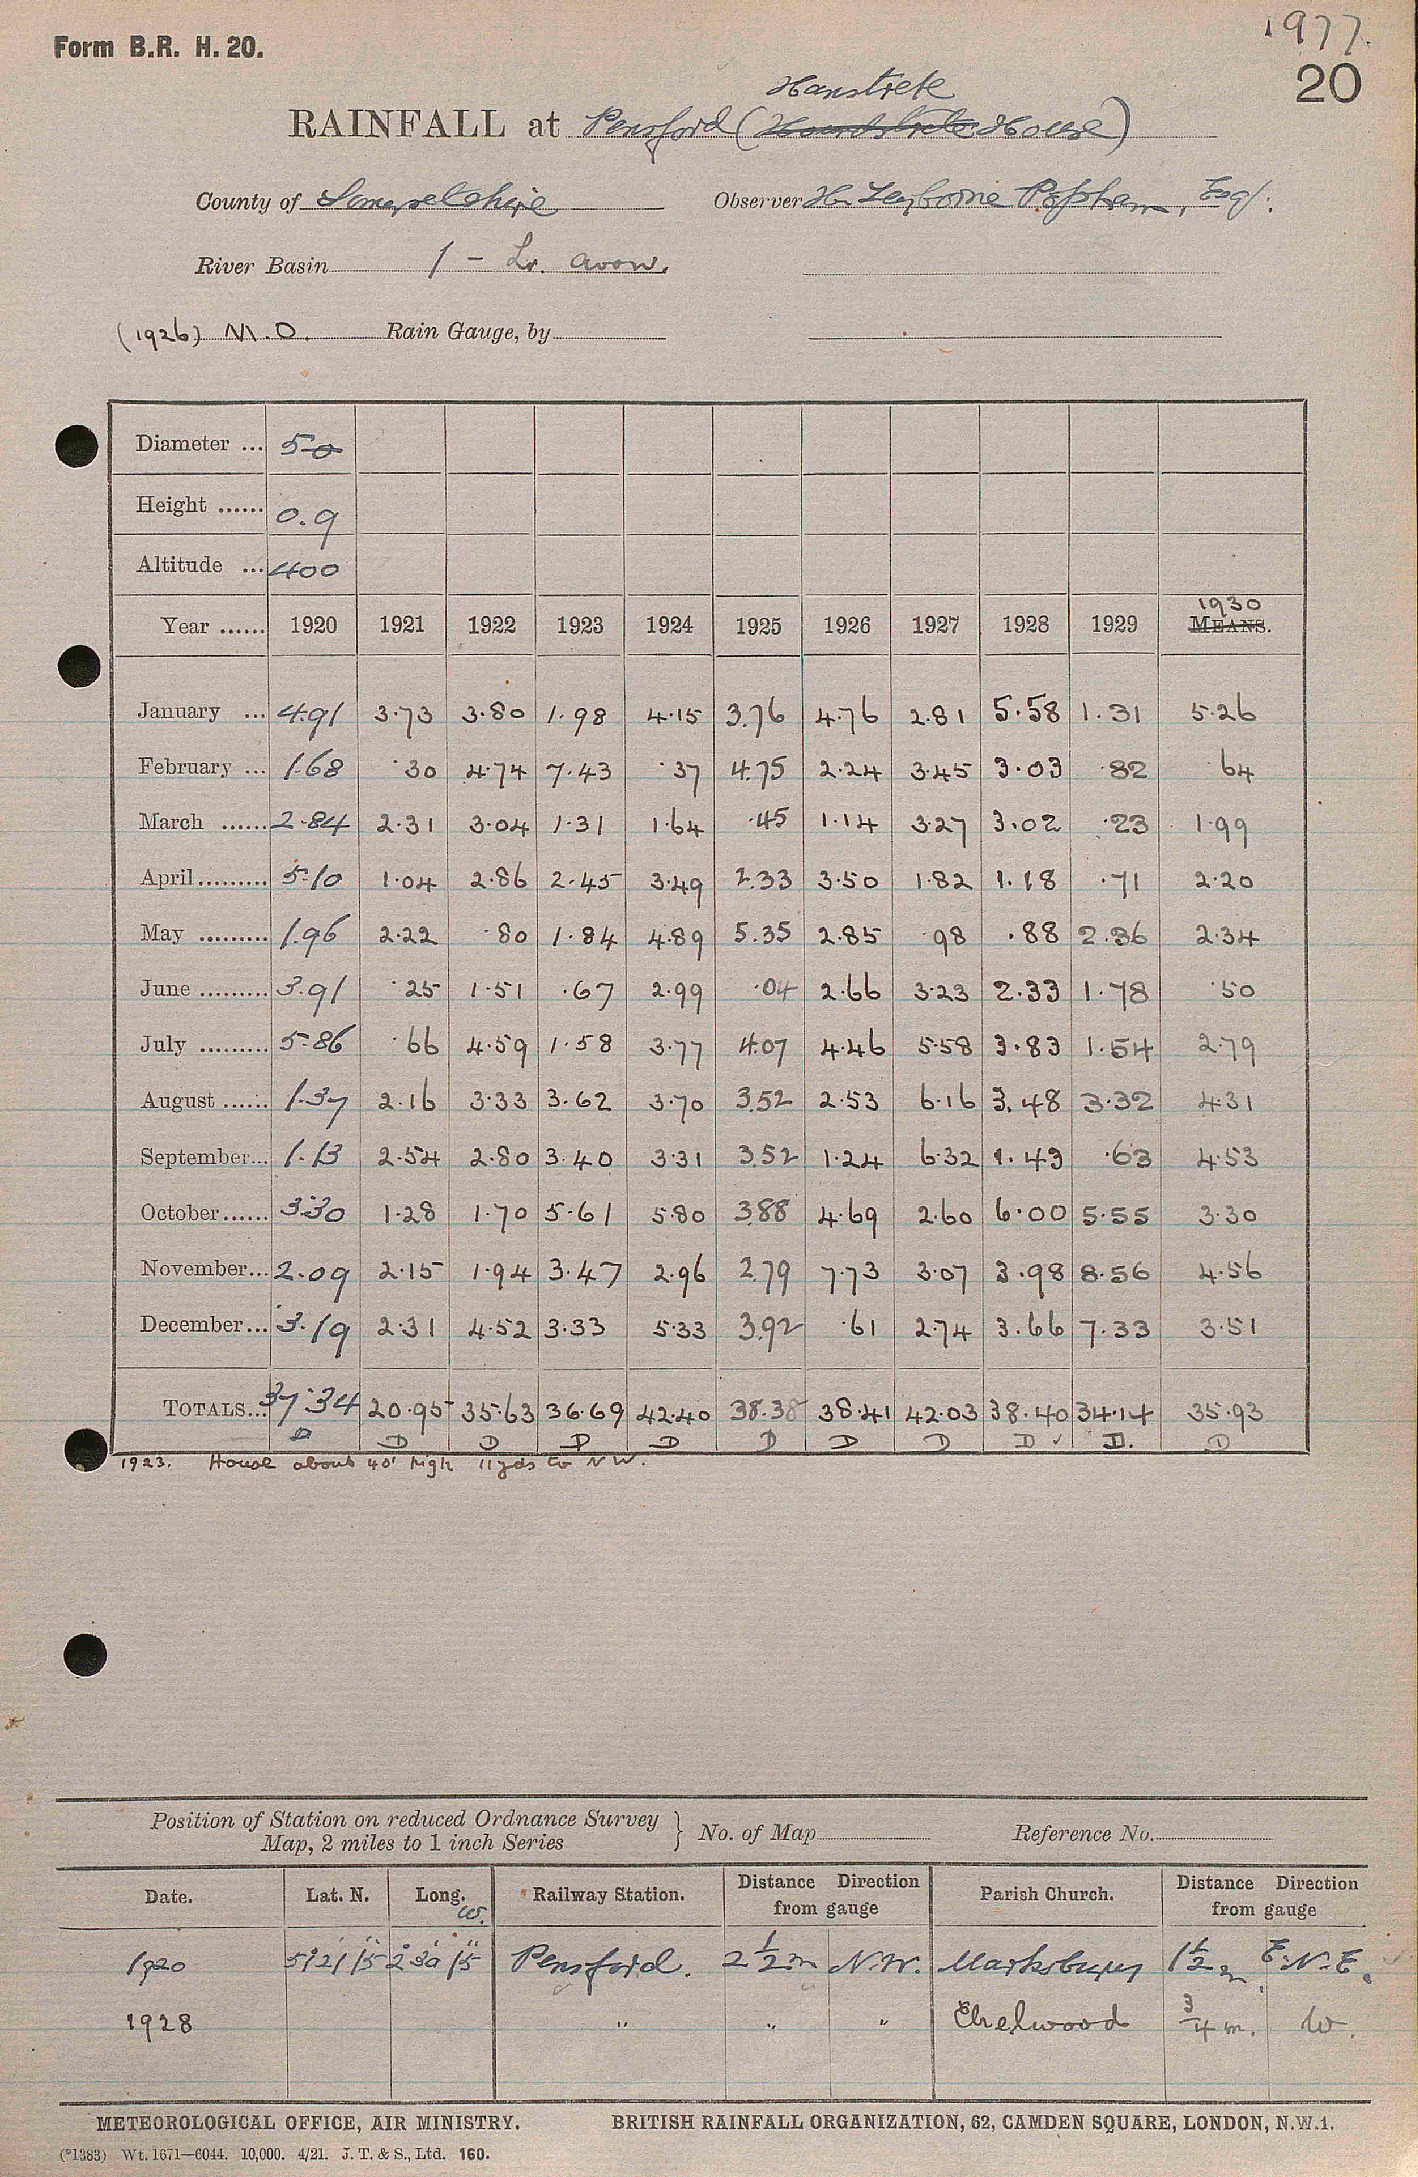 1977.
Form B.R. H. 20.
20
Hunstrete
RAINFALL at Pensford (Hunstrete House)
County of Somersetshire Observer H. Leyborne Popham, Esq.
River Basin 1 - Lr. Avon.
(1926) M.O. Rain Gauge, by
Diameter ... 5.0
Height ...... 0.9
Altitude ... 400
1930
Year ...... 1920 1921 1922 1923 1924 1925 1926 1927 1928 1929 MEANS.
January ... 4.91 3.73 3.80 1.98 4.15 3.76 4.76 2.81 5.58 1.31 5.26
February ... 1.68 .30 4.74 7.43 .37 4.75 2.24 3.45 3.03 .82 .64
March ...... 2.84 2.31 3.04 1.31 1.64 .45 1.14 3.27 3.02 .23 1.99
April ......... 5.10 1.04 2.86 2.45 3.49 2.33 3.50 1.82 1.18 .71 2.20
May ......... 1.96 2.22 .80 1.84 4.89 5.35 2.85 .98 .88 2.36 2.34
June ......... 3.91 .25 1.51 .67 2.99 .04 2.66 3.23 2.33 1.78 .50
July ......... 5.86 .66 4.59 1.58 3.77 4.07 4.46 5.58 3.83 1.54 2.79
August ...... 1.37 2.16 3.33 3.62 3.70 3.52 2.53 6.16 3.48 3.32 4.31
September... 1.13 2.54 2.80 3.40 3.31 3.52 1.24 6.32 1.43 .63 4.53
October ...... 3.30 1.28 1.70 5.61 5.80 3.88 4.69 2.60 6.00 5.55 3.30
November... 2.09 2.15 1.94 3.47 2.96 2.79 7.73 3.07 3.98 8.56 4.56
December... 3.19 2.31 4.52 3.33 5.33 3.92 .61 2.74 3.66 7.33 3.51
TOTALS... 37.34 20.95 35.63 36.69 42.40 38.38 38.41 42.03 38.40 34.14 35.93
D D D D D D D D D ✓ D. D
1923. House about 40' high 11 yds to NW.
Position of Station on reduced Ordnance Survey
Map, 2 miles to 1 inch Series } No. of Map Reference No.
Date. Lat. N. Long. W. Railway Station. Distance Direction from gauge Parish Church. Distance Direction from gauge
1920 51° 21' 15" 2° 30' 15" Pensford. 2 1/2 m N.W. Marksbury 1 1/2 m E.N.E.
1928 " " " Chelwood 3/4 m. W.
METEOROLOGICAL OFFICE, AIR MINISTRY. BRITISH RAINFALL ORGANIZATION, 62, CAMDEN SQUARE, LONDON, N.W.1.
(*1383) Wt. 1671—6044. 10,000. 4/21. J. T. & S., Ltd. 160.